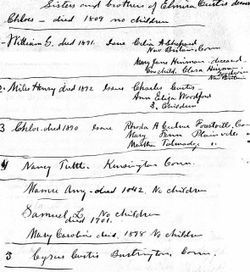 Sisters and brothers of Elmira Curtis
Chloe - died 1809 no children
William G. died 1891. Issue Celia A Shepard
New Britain, Conn
Mary Jane Hinman - deceased
One child, Clara Hinman
New Britain
2- Miles Henry died 1892 Issue Charles Curtis
Ann Eliza Woodford
3. Children
3 Chloe. died 1890 Issue Rhoda A Conn
Mary Plainville
Martha Talmadge
4 Nancy Tuttle. Kensington Conn.
died 1842. No children
Samuel L. No children
died 1901.
Mary Caroline died. 1898 No children
3 Cyrus Curtis Burlington, Conn.